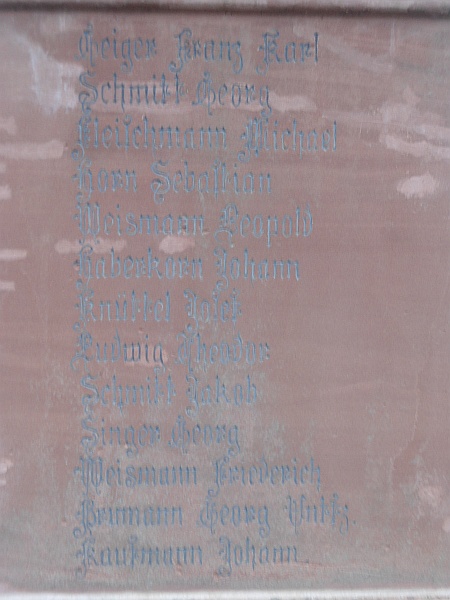 Geiger Franz Karl
Schmitt Georg
Fleischmann Michael
Horn Sebastian
Weismann Leopold
Haberkorn Johann
Knüttel Josef
Ludwig Theodor
Schmitt Jakob
Singer Georg
Weismann Friederich
Brumann Georg
Kaufmann Johann